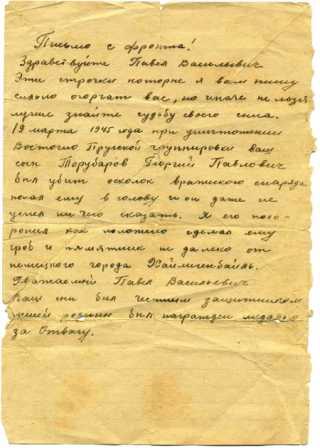 Письмо с фронта!
Здравствуйте Павел Васильевич
Эти строчки которые я вам пишу
сильно огорчат вас, но иначе не
лучше знайте судьбу своего сына.
19 марта 1945 года при уничтожении
Восточно Прусской группировки ваш
сын Торубаров Георгий Павлович
был убит осколок вражеского снаряда
попал ему в голову и он даже не
успел ни чего сказать. Я его похо-
ронил как положено сделал ему
гроб и памятник не далеко от
немецкого города Хайлигенбайль.
Уважаемый Павел Васильевич
Ваш сын был честным защитником
нашей родины был награжден медалью
за Отвагу.